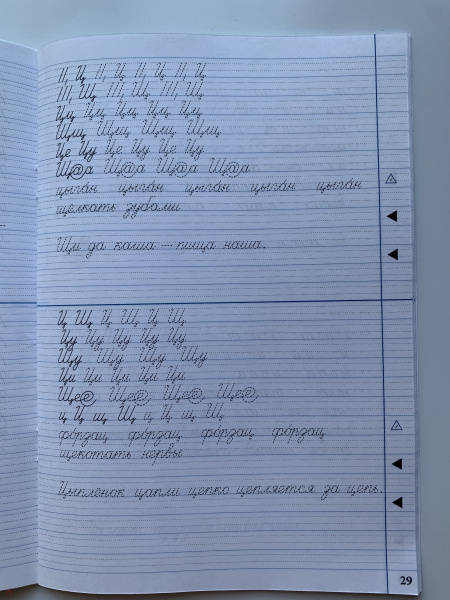 Ц Ц Ц Ц Ц Ц Ц Ц
Щ Щ Щ Щ Щ Щ
Цц Цц Цц Цц Цц
Щщ Щщ Щщ Щщ
Це Цу Це Цу Це Цу
Щ@а Щ@а Щ@а Щ@а
цыга́н цыга́н цыга́н цыга́н цыга́н
щёлкать зубами
Щи да каша — пища наша.
Ц Щ Ц Щ Ц Щ
Цу Цу Цу Цу Цу
Щу Щу Щу Щу
Ци Ци Ци Ци Ци
Ще@ Ще@ Ще@ Ще@
ц Ц щ Щ ц Ц щ Щ
фо́рзац фо́рзац фо́рзац фо́рзац
щекотать нервы
Цыплёнок цапли цепко цепляется за цепь.
29